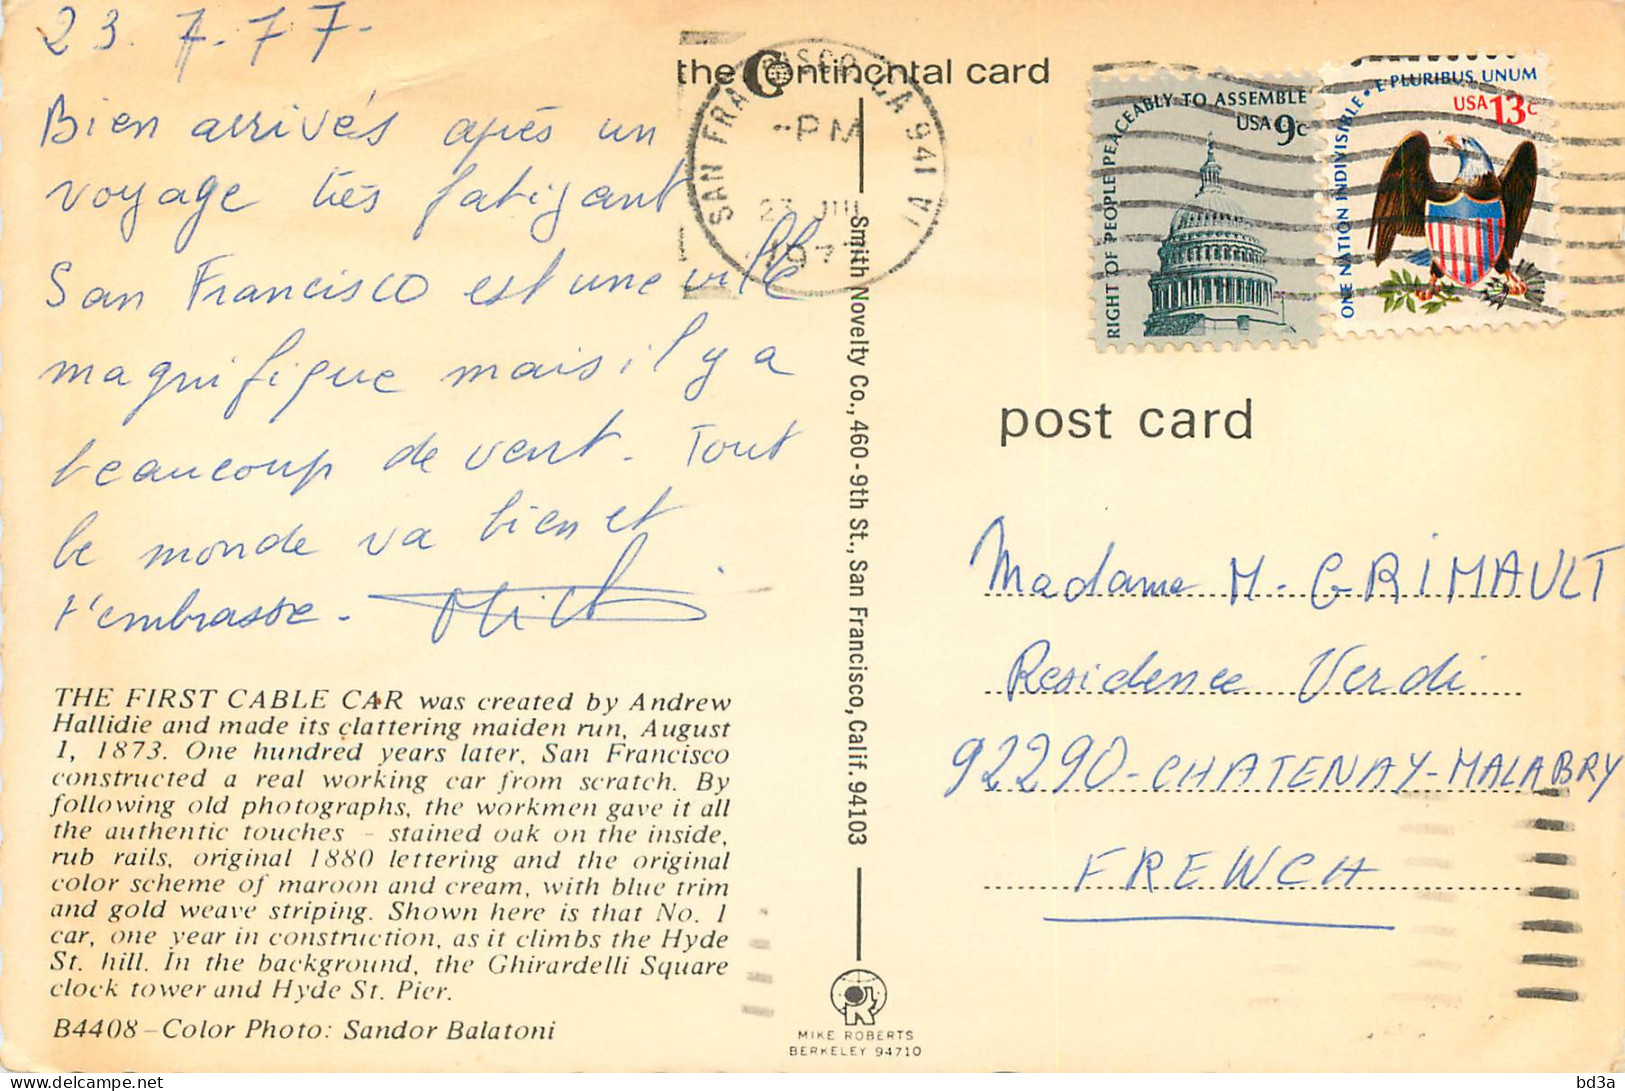 23.7.77-
Bien arrivés après un
voyage très fatigant
San Francisco est une ville
magnifique mais il y a
beaucoup de vent. Tout
le monde va bien et
t'embrasse.
THE FIRST CABLE CAR was created by Andrew
Hallidie and made its clattering maiden run, August
1, 1873. One hundred years later, San Francisco
constructed a real working car from scratch. By
following old photographs, the workmen gave it all
the authentic touches - stained oak on the inside,
rub rails, original 1880 lettering and the original
color scheme of maroon and cream, with blue trim
and gold weave striping. Shown here is that No. 1
car, one year in construction, as it climbs the Hyde
St. hill. In the background, the Ghirardelli Square
clock tower and Hyde St. Pier.
B4408 - Color Photo: Sandor Balatoni
the Continental card
SAN FRANCISCO CA 941
PM
23
197
Smith Novelty Co., 460-9th St., San Francisco, Calif. 94103
MIKE ROBERTS
BERKELEY 94710
RIGHT OF PEOPLE PEACEABLY TO ASSEMBLE
USA 9c
ONE NATION INDIVISIBLE • E PLURIBUS UNUM
USA 13c
post card
Madame M. GRIMAULT
Residence Verdi
92290 - CHATENAY-MALABRY
FRENCH
bd3a